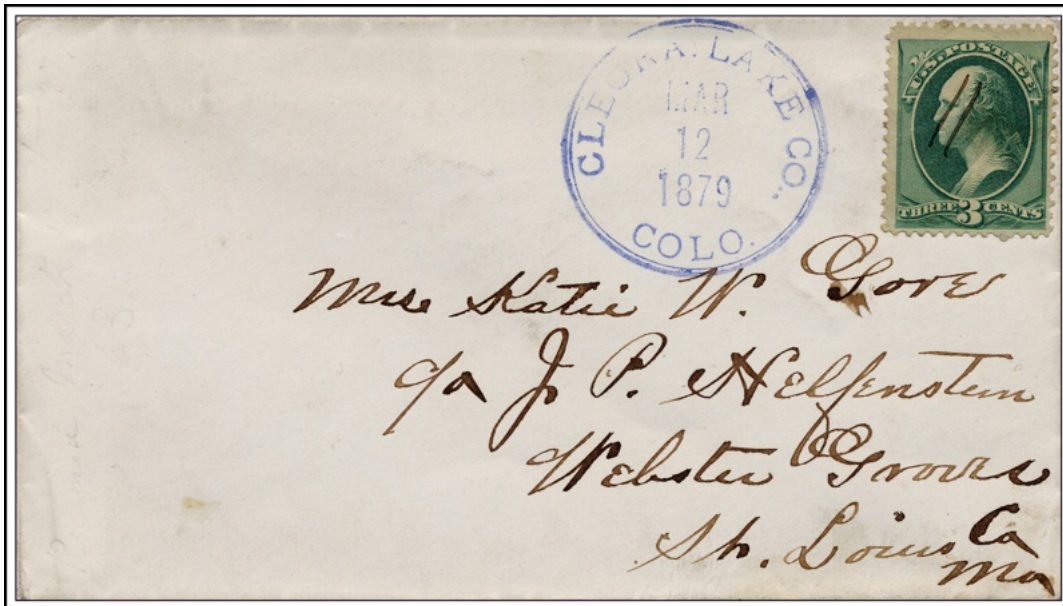 CLEORA, LAKE CO.,
MAR
12
1879
COLO.
U.S. POSTAGE
THREE 3 CENTS
Mrs Katie W. Gove
c/o J. P. Helfenstein
Webster Groves
St. Louis Co
Mo